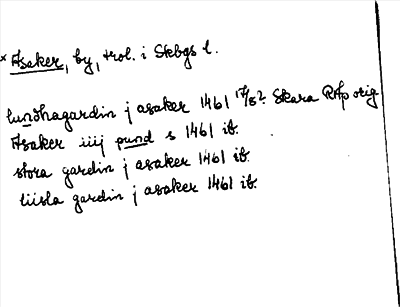 × Asaker, by, trol. i Skbgs l.
lundhagardin j asaker 1461 17/5? Skara RAp orig
Asaker iiij pund s 1461 ib.
stora gardin j asaker 1461 ib.
liisla gardin j asaker 1461 ib.